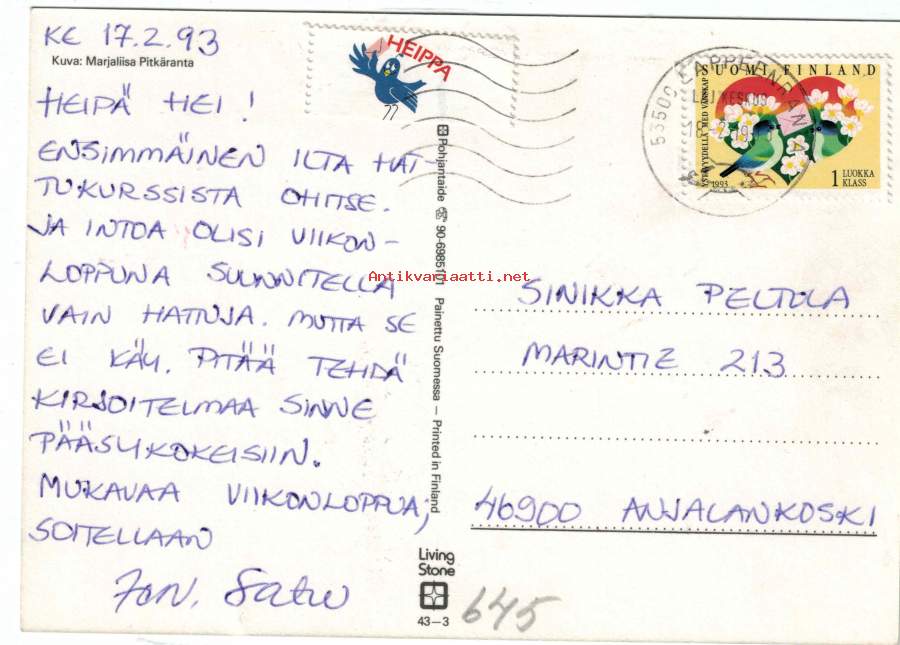 KE 17.2.93
Kuva: Marjaliisa Pitkäranta
HEIPÄ HEI !
ENSIMMÄINEN ILTA HAT-
TUKURSSISTA OHITSE.
JA INTOA OLISI VIIKON-
LOPPUNA SUUNNITELLA
VAIN HATTUJA. MUTTA SE
EI KÄY. PITÄÄ TEHDÄ
KIRJOITELMAA SINNE
PÄÄSYKOKEISIIN.
MUKAVAA VIIKONLOPPUA,
SOITELLAAN
Satu
HEIPPA
Pohjantaide ☏ 90-6985101 Painettu Suomessa – Printed in Finland
Living
Stone
43–3
645
SUOMI FINLAND
YSTÄVYYDELLÄ MED VÄNSKAP
1993
1 LUOKKA
KLASS
53500 LAPPEENRAN
SINIKKA PELTOLA
MARINTIE 213
46900 ANJALANKOSKI
Antikvariaatti.net